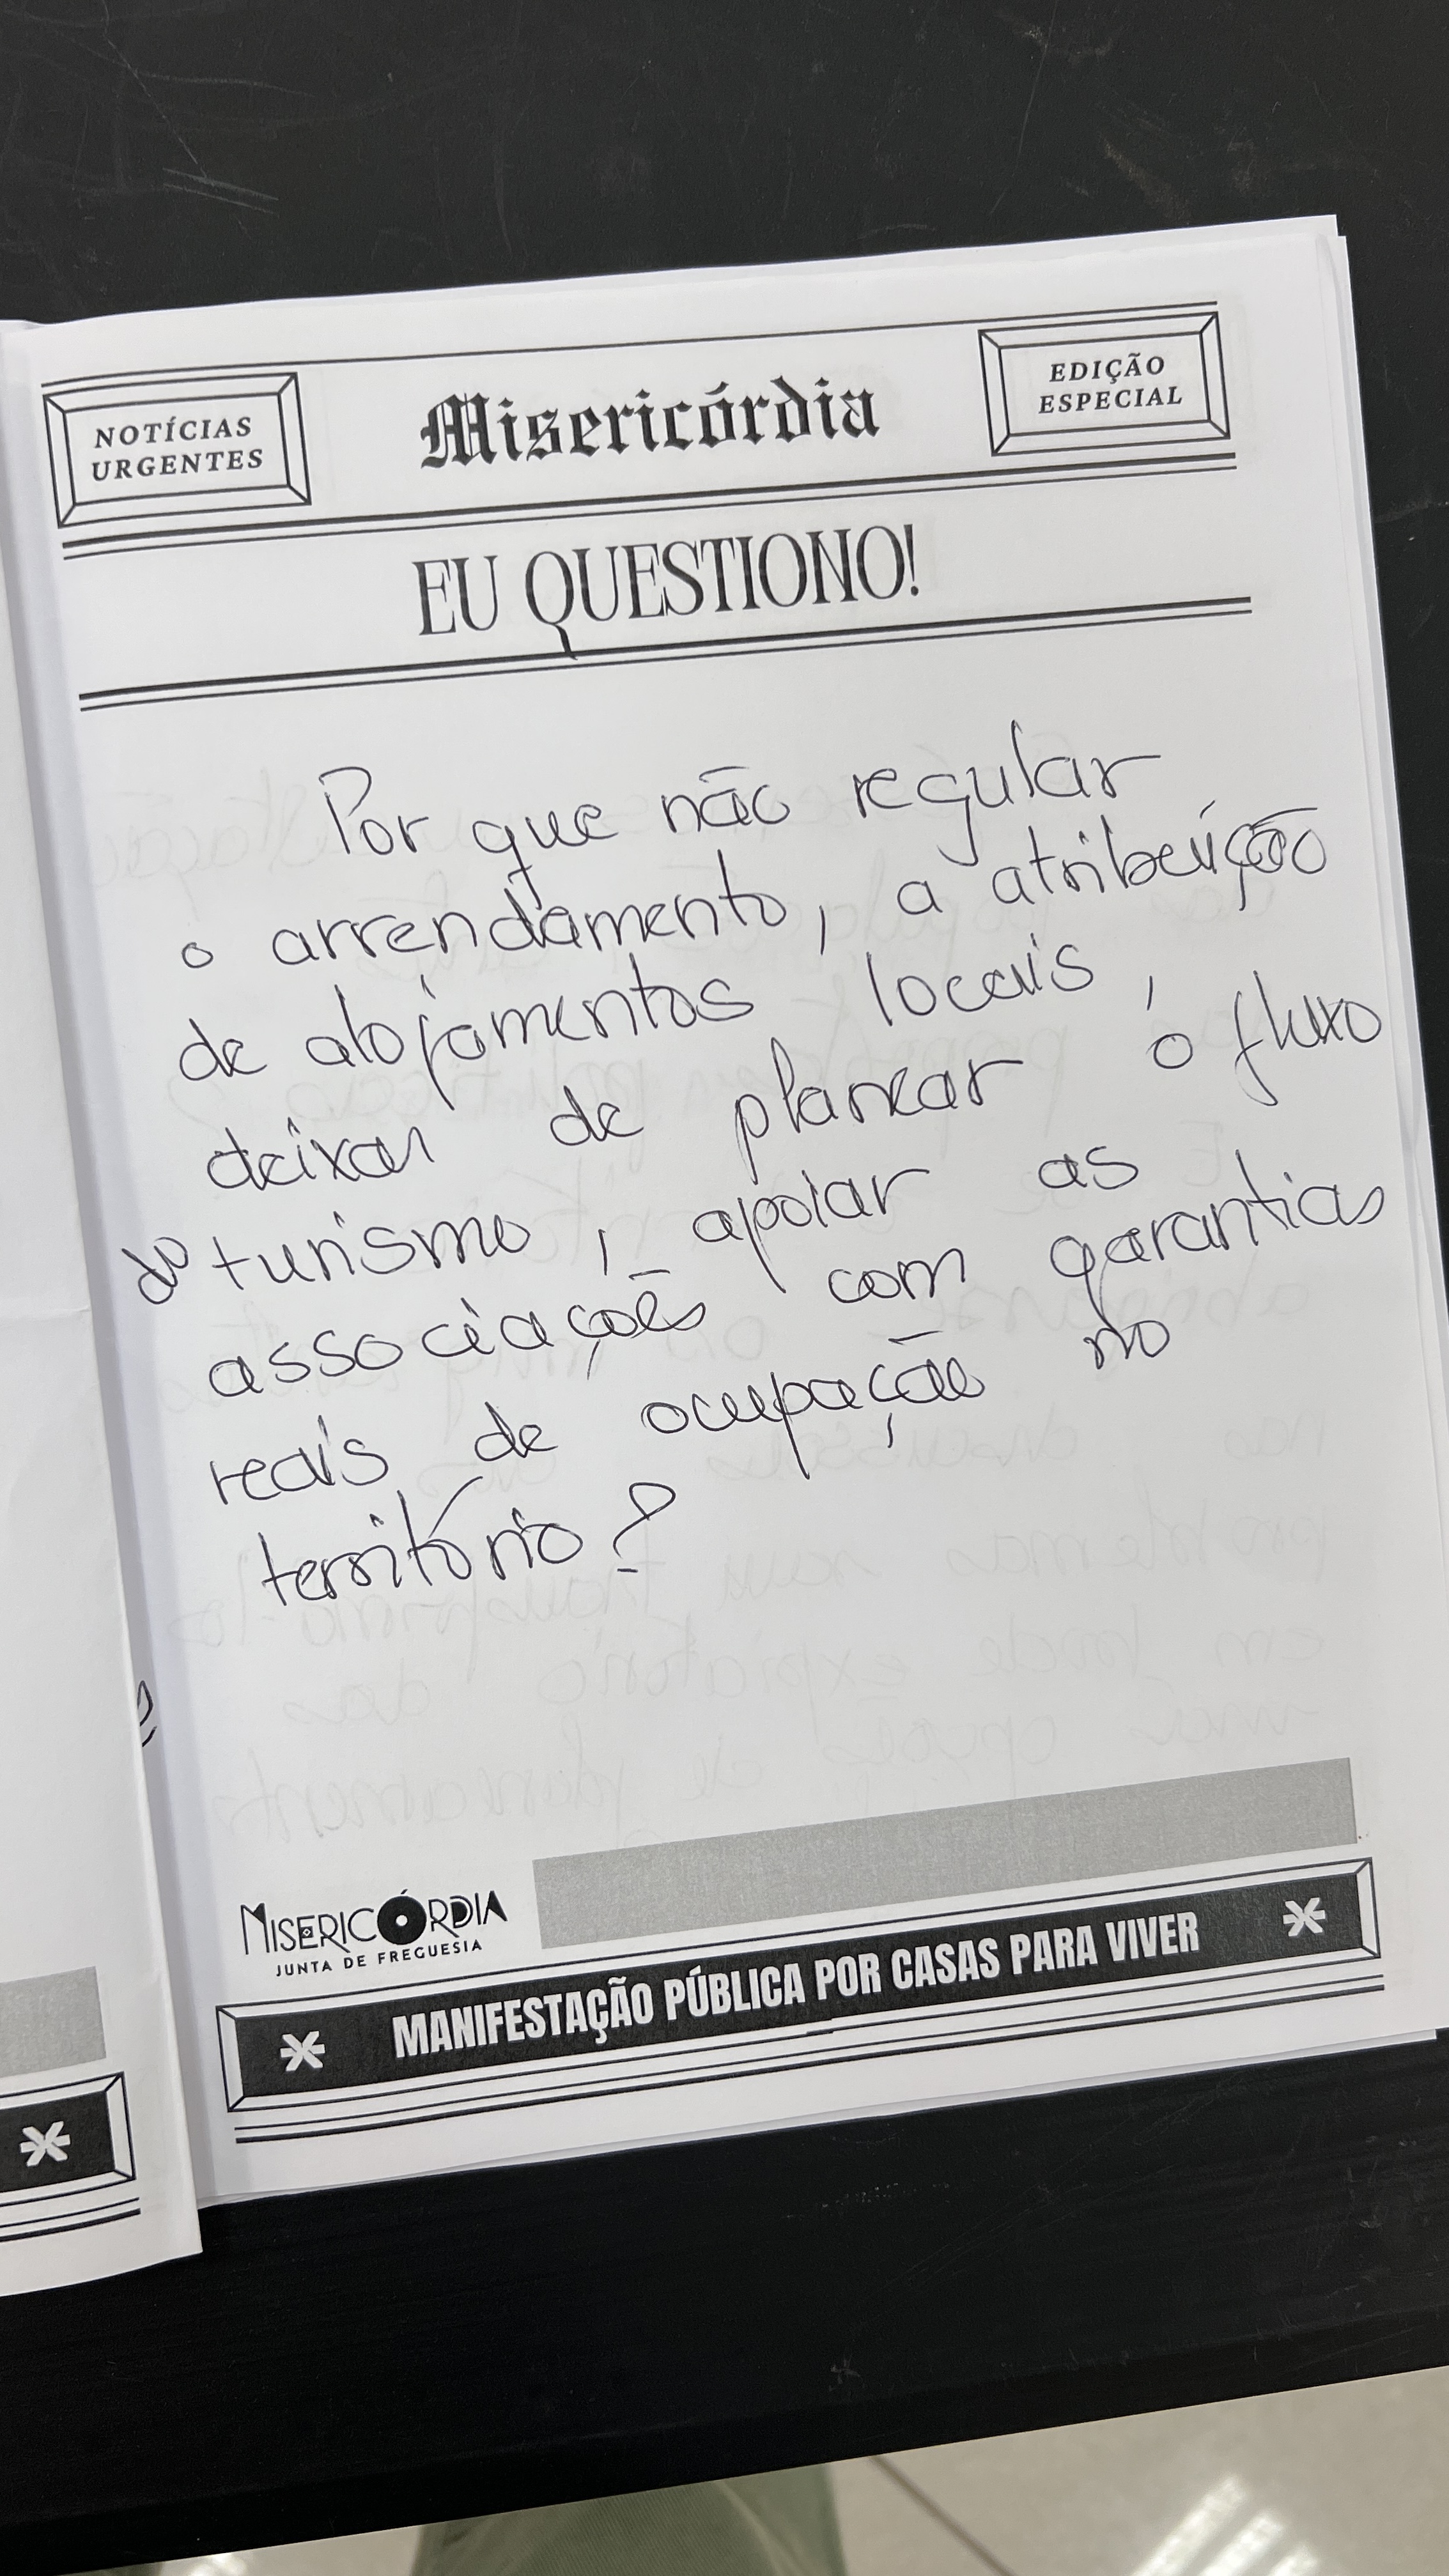 NOTÍCIAS
URGENTES
Misericórdia
EDIÇÃO
ESPECIAL
EU QUESTIONO!
Por que não regular
o arrendamento, a atribuição
de alojamentos locais,
deixar de planear o fluxo
do turismo, apoiar as
associações com garantias
reais de ocupação no
território?
MISERICÓRDIA
JUNTA DE FREGUESIA
MANIFESTAÇÃO PÚBLICA POR CASAS PARA VIVER